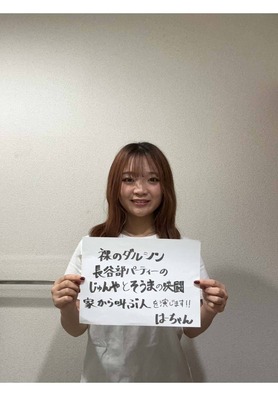 裸のダルシノン
長谷部パーティーの
じゅんやとそうまの決闘
家から叫ぶ人を演じます!!
はーちゃん